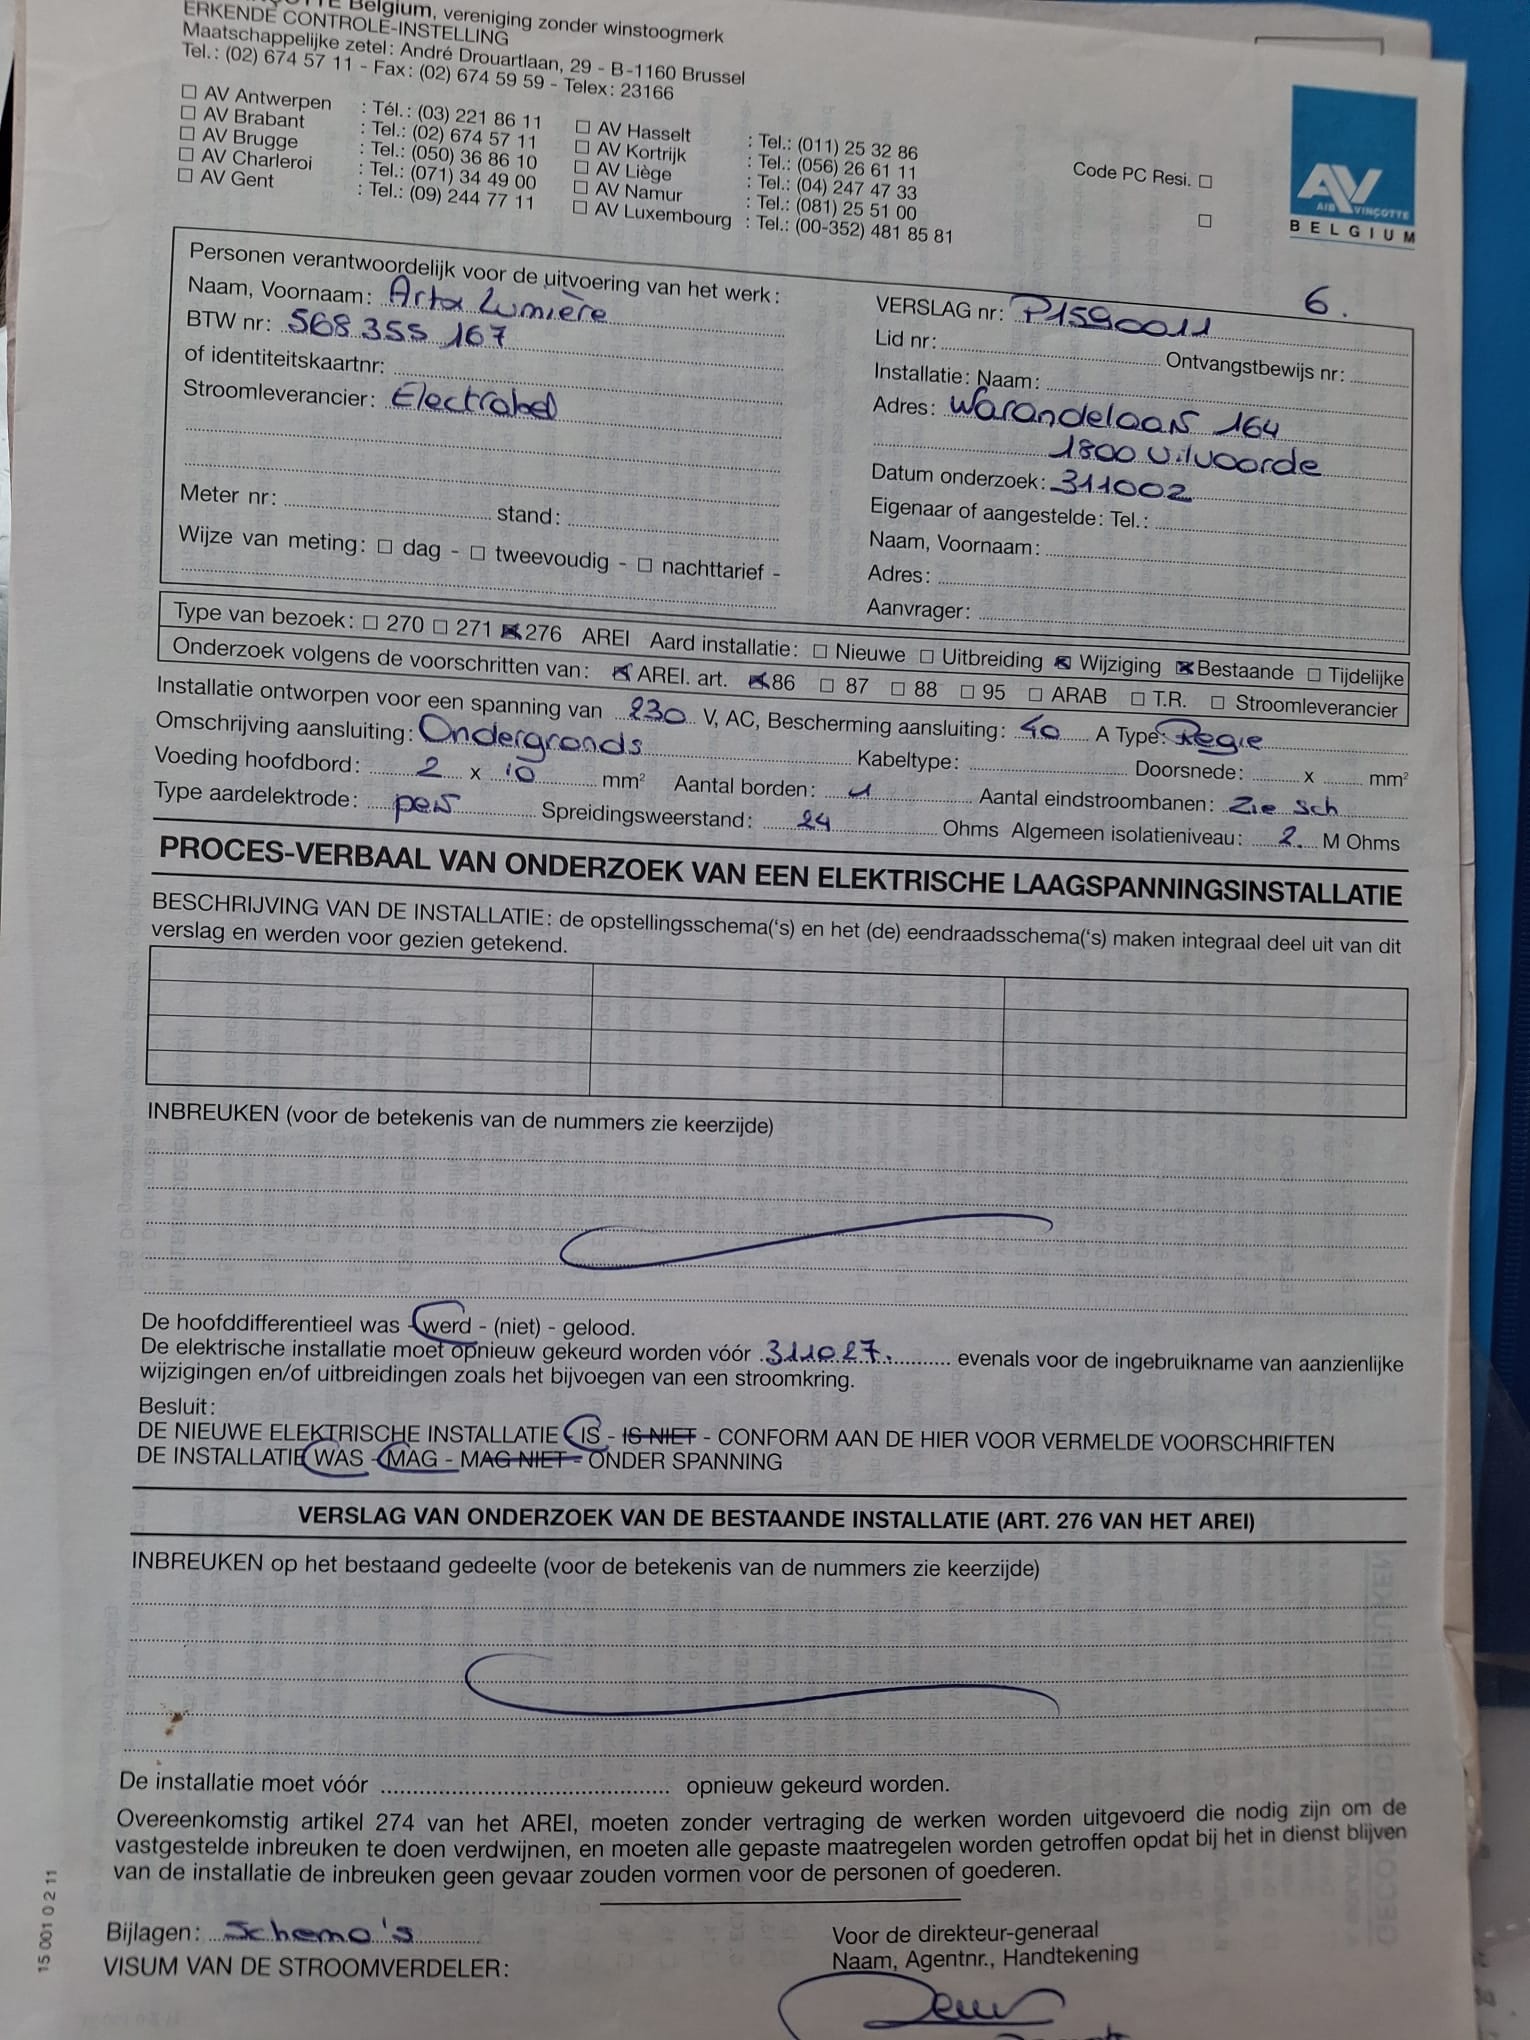 Belgium, vereniging zonder winstoogmerk
ERKENDE CONTROLE-INSTELLING
Maatschappelijke zetel: André Drouartlaan, 29 - B-1160 Brussel
Tel.: (02) 674 57 11 - Fax: (02) 674 59 59 - Telex: 23166
☐ AV Antwerpen : Tél.: (03) 221 86 11 ☐ AV Hasselt : Tel.: (011) 25 32 86
☐ AV Brabant : Tel.: (02) 674 57 11 ☐ AV Kortrijk : Tel.: (056) 26 61 11
☐ AV Brugge : Tel.: (050) 36 86 10 ☐ AV Liège : Tel.: (04) 247 47 33
☐ AV Charleroi : Tel.: (071) 34 49 00 ☐ AV Namur : Tel.: (081) 25 51 00
☐ AV Gent : Tel.: (09) 244 77 11 ☐ AV Luxembourg : Tel.: (00-352) 481 85 81
Code PC Resi. ☐
☐
AV
AIB VINÇOTTE
BELGIUM
Personen verantwoordelijk voor de uitvoering van het werk:
Naam, Voornaam: Arta Lumière
BTW nr: 568 355 167
of identiteitskaartnr:
Stroomleverancier: Electrabel
Meter nr: stand:
Wijze van meting: ☐ dag - ☐ tweevoudig - ☐ nachttarief -
6.
VERSLAG nr: P1590011
Lid nr: Ontvangstbewijs nr:
Installatie: Naam:
Adres: Warandelaan 164
1800 Vilvoorde
Datum onderzoek: 311002
Eigenaar of aangestelde: Tel.:
Naam, Voornaam:
Adres:
Aanvrager:
Type van bezoek: ☐ 270 ☐ 271 ☒ 276 AREI Aard installatie: ☐ Nieuwe ☐ Uitbreiding ☒ Wijziging ☒ Bestaande ☐ Tijdelijke
Onderzoek volgens de voorschritten van: ☒ AREI. art. ☒ 86 ☐ 87 ☐ 88 ☐ 95 ☐ ARAB ☐ T.R. ☐ Stroomleverancier
Installatie ontworpen voor een spanning van 230 V, AC, Bescherming aansluiting: 40 A Type: Regie
Omschrijving aansluiting: Ondergronds Kabeltype: Doorsnede: x mm²
Voeding hoofdbord: 2 x 10 mm² Aantal borden: 1 Aantal eindstroombanen: Zie Sch
Type aardelektrode: pen Spreidingsweerstand: 24 Ohms Algemeen isolatieniveau: 2. M Ohms
PROCES-VERBAAL VAN ONDERZOEK VAN EEN ELEKTRISCHE LAAGSPANNINGSINSTALLATIE
BESCHRIJVING VAN DE INSTALLATIE: de opstellingsschema('s) en het (de) eendraadsschema('s) maken integraal deel uit van dit
verslag en werden voor gezien getekend.
INBREUKEN (voor de betekenis van de nummers zie keerzijde)
De hoofddifferentieel was - werd - (niet) - gelood.
De elektrische installatie moet opnieuw gekeurd worden vóór 311027. evenals voor de ingebruikname van aanzienlijke
wijzigingen en/of uitbreidingen zoals het bijvoegen van een stroomkring.
Besluit:
DE NIEUWE ELEKTRISCHE INSTALLATIE - IS - IS NIET - CONFORM AAN DE HIER VOOR VERMELDE VOORSCHRIFTEN
DE INSTALLATIE WAS - MAG - MAG NIET - ONDER SPANNING
VERSLAG VAN ONDERZOEK VAN DE BESTAANDE INSTALLATIE (ART. 276 VAN HET AREI)
INBREUKEN op het bestaand gedeelte (voor de betekenis van de nummers zie keerzijde)
De installatie moet vóór opnieuw gekeurd worden.
Overeenkomstig artikel 274 van het AREI, moeten zonder vertraging de werken worden uitgevoerd die nodig zijn om de
vastgestelde inbreuken te doen verdwijnen, en moeten alle gepaste maatregelen worden getroffen opdat bij het in dienst blijven
van de installatie de inbreuken geen gevaar zouden vormen voor de personen of goederen.
Bijlagen: Schema's
VISUM VAN DE STROOMVERDELER:
Voor de direkteur-generaal
Naam, Agentnr., Handtekening
15 001 0 2 11